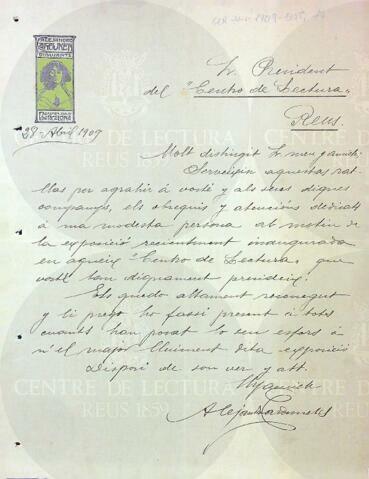 ALEJANDRO
CARDUNETS
DIBUJANTE
BARCELONA
Sr. President
del "Centro de Lectura"
Reus.
28-Abril 1909
Molt distingit Sr. meu y amich:
Serveixin aquestas rat-
llas per agrahir á vosté y als seus dignes
companys, els obsequis y atencións dedicats
á ma modesta persona ab motiu de
la exposició recientment inaugurada
en aqueix "Centro de Lectura" que
vosté tan dignament presideix.
Els quedo altament reconegut
y li prego ho fassi present á tots
cuants han posat lo seu esfors á
n'el major lluiment dita exposició
Disposi de son ver. y att.
y amich
Alejandro Cardunets
CENTRE DE LECTURA
REUS 1859
CENTRE DE LECTURA
REUS 1859